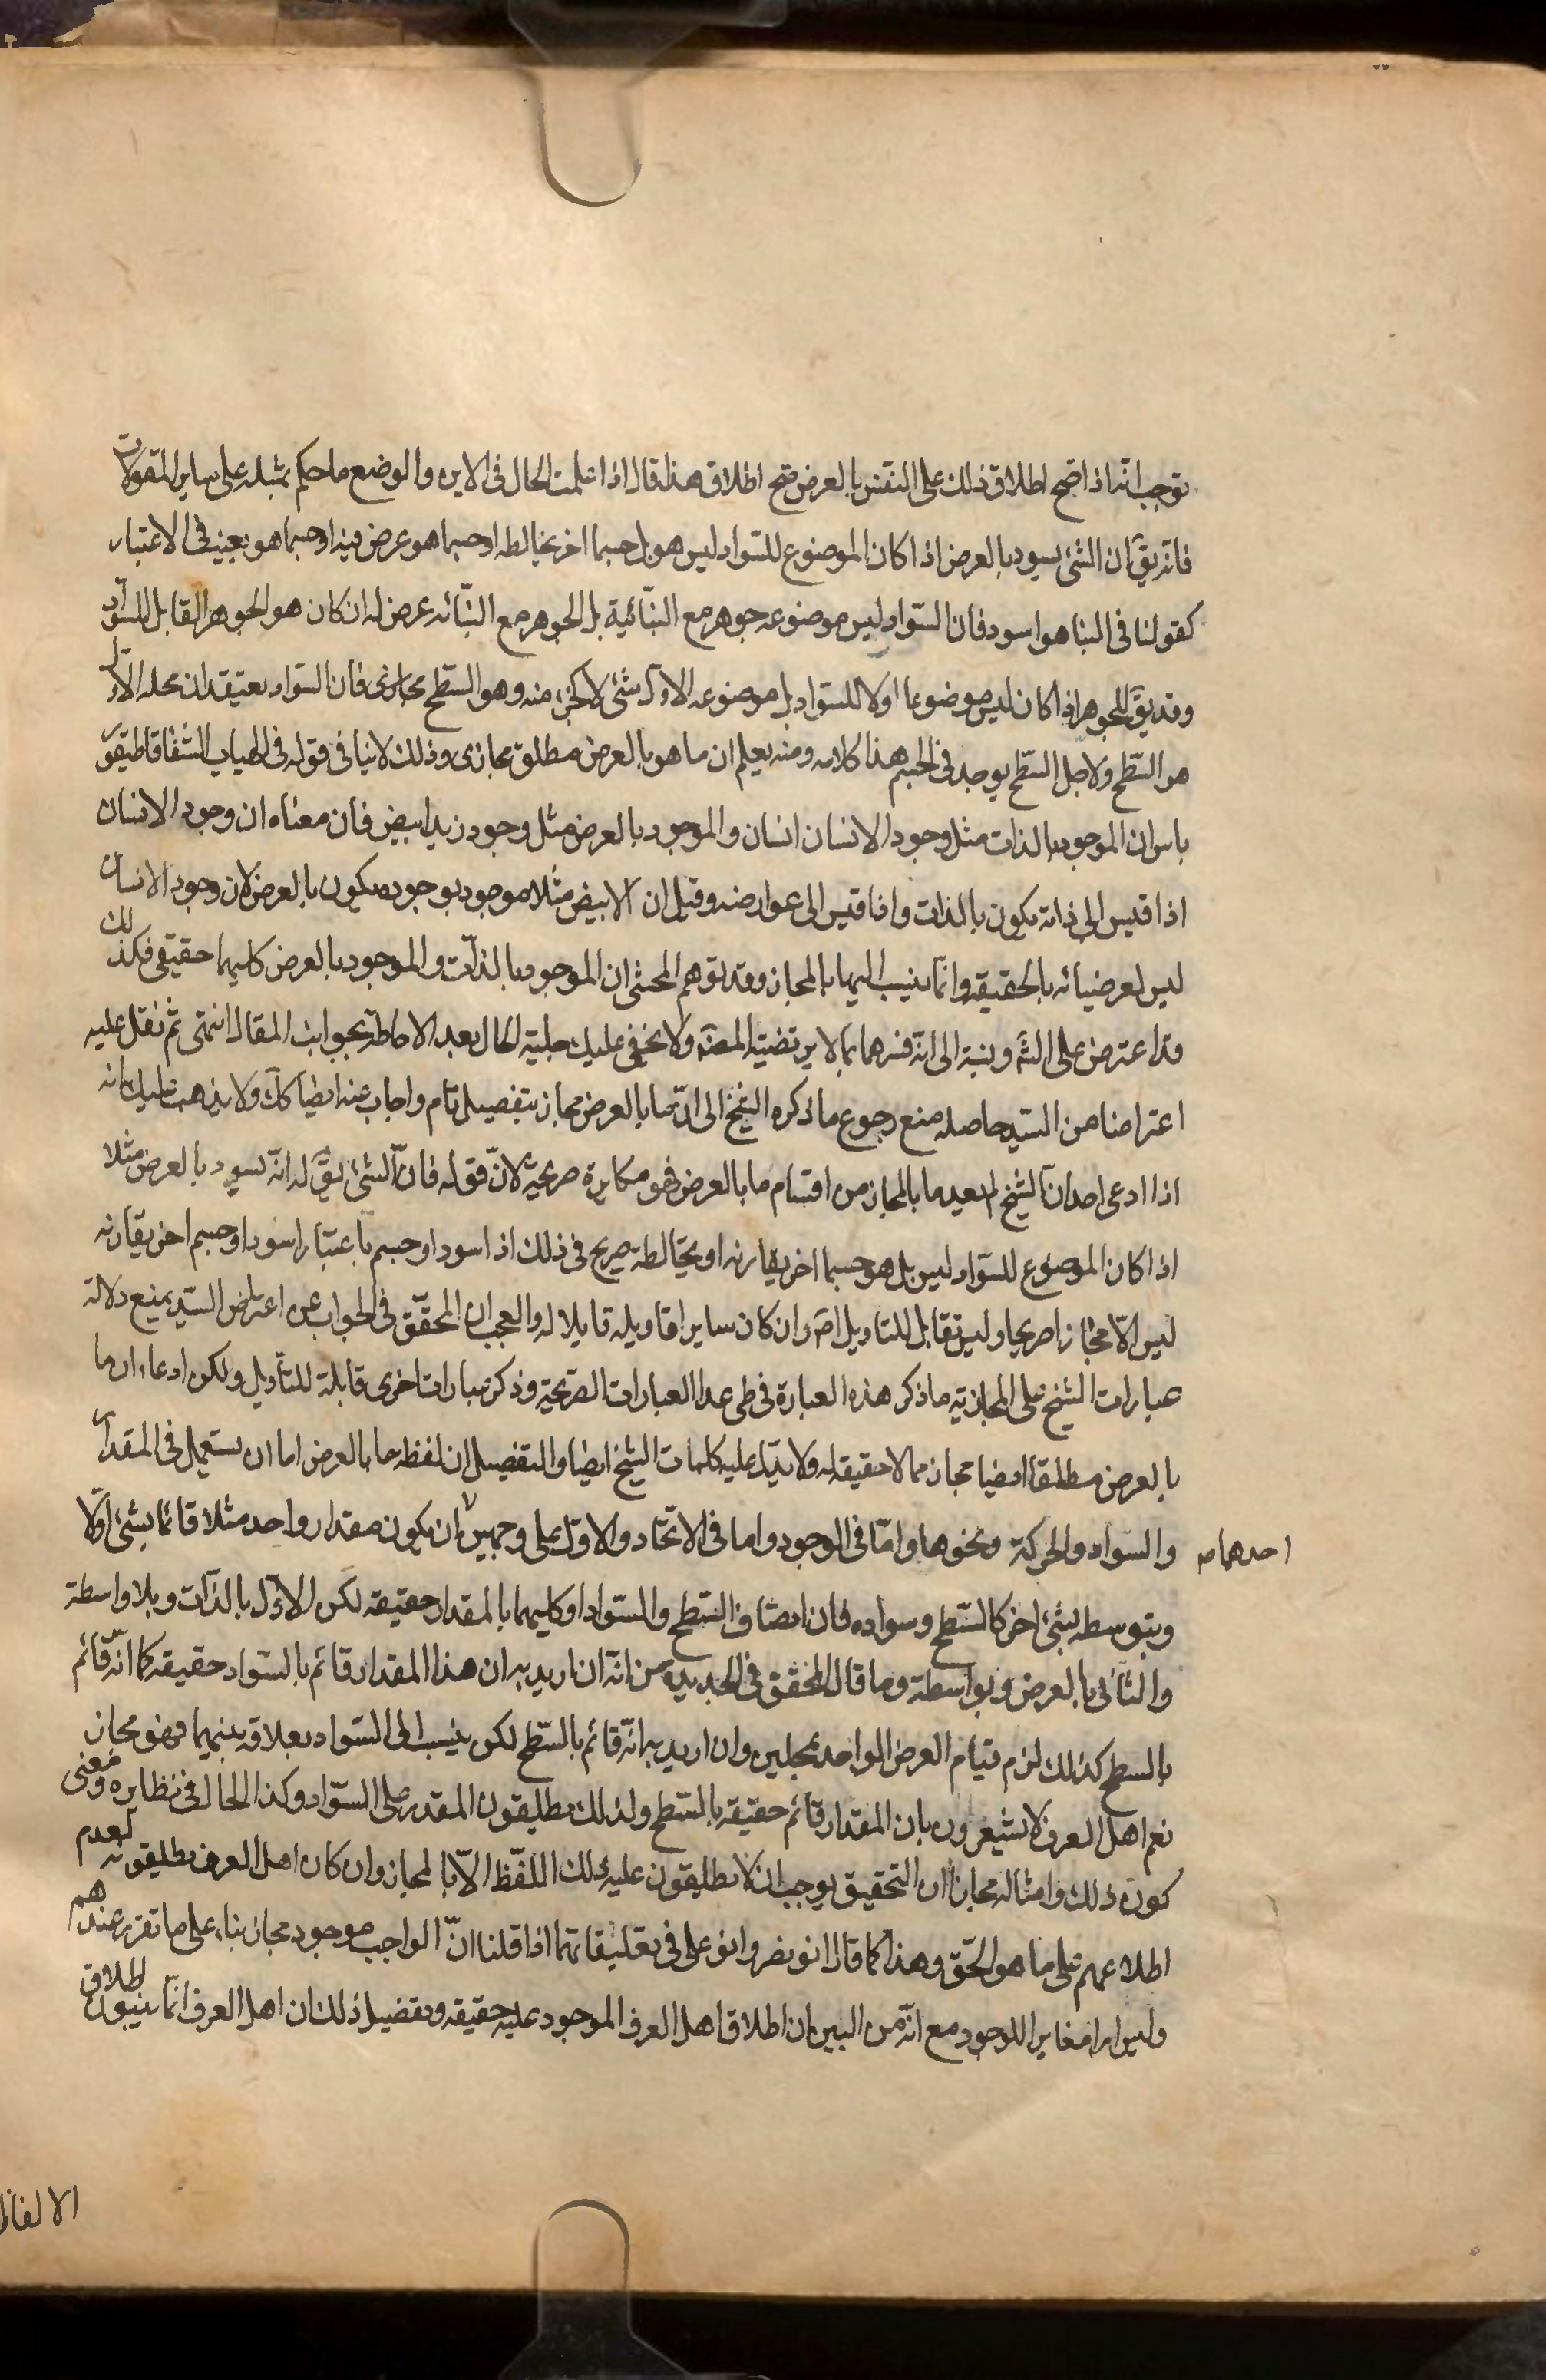 يوجب انه اذا صح اطلاق ذلك على النفس بالعرض صح اطلاق هذا قال اذا علمت الحال فى الاين والوضع فاحكم بمثله على ساير المقولات
فانه يقَ ان الشئ يسود بالعرض اذا كان الموضوع للسّواد ليس هو بل جسما اخر يخالطه او جسما هو عرض فيه او جسما هو بعينه فى الاعتبار
كقولنا فى البنا هو اسود فان السّواد ليس موضوعه جوهر مع البنّائية بل الجوهر مع البنّائه عرض له ان كان هو الجوهر القابل للسوّاد
وقد يقَ للجوهر اذا كان ليس موضوعا اولا للسّواد بل موضوعه الاول شئ لا كجزء منه وهو السّطح مجازى فان السّواد يعتقد ان محله الاوّل
هو السّطح ولاجل السّطح يوجد فى الجسم هذا كلامه ومنه يعلم ان ما هو بالعرض مطلق مجازى وذلك لا ينافى قوله فى الهيات الشفا قاطيقو
ياس ان الموجود بالذات مثل وجود الانسان انسان والموجود بالعرض مثل وجود زيد ابيض فان معناه ان وجود الانسان
اذا قيس الى ذاته يكون بالذات واذا قيس الى عوارضه وقيل ان الابيض مثلا موجود بوجوده يكون بالعرض لان وجود الانسان
ليس لعرضياته بالحقيقه وانّما ينسب اليها بالمجاز وقد توهم المحشى ان الموجود بالذّات والموجود بالعرض كليهما حقيقى فكذلك
قد اعترض على الشَ ونسبة الى انه فسرهما بما لا يرتضيه المصنّف ولا يخفى عليك جلية الحال بعد الاحاطة بجوانب المقال انتهى ثم نقل عليه
اعتراضا من السّيد حاصله منع رجوع ما ذكره الشيخ الى انّ ما بالعرض مجاز بتفصيل تام واجاب عنه ايضا كذلك ولا يذهب عليك انه
اذا ادعى احد انّ الشيخ لم يعد ما بالمجاز من اقسام ما بالعرض فهو مكابرة صريحة لانّ قوله فانّ الشئ يقَ له انّه يسود بالعرض مثلا
اذا كان الموضوع للسّواد ليس بل هو جسما اخر يقارنه او يخالطه صريح فى ذلك اذ اسود او جسم باعتبار اسود او جسم اخر يقارنه
ليس الّا مجازا صريحا وليس قابل للتاويل اصَ وان كان ساير اقاويله قابلا له والعجب ان المحقّق فى الجواب عن اعتراض السّيد يمنع دلالة
عبارات الشيخ على المجازيّه ما ذكر هذه العبارة فى طى عدا العبارات الصّريحة وذكر عبارات اخرى قابلة للتأويل ولكن ادعاء ان ما
بالعرض مطلقا ايضا مجاز مما لا حقيقه له ولا يدلّ عليه كلمات الشيخ ايضا والتفصيل ان لفظه ما بالعرض اما ان يستعمل فى المقدار
والسّواد والحركة ونحوها وامّا فى الوجود واما فى الاتحاد والاوّل على وجهين ان يكون مقدار واحد مثلا قائما بشئ اوّلا
احدهما صح
وبتوسطه بشئ اخر كالسّطح وسواده فان اتصاف السّطح والسّواد كليهما بالمقدار حقيقه لكن الاوّل بالذّات وبلا واسطة
والثّانى بالعرض وبواسطة وما قال المحقّق فى الجديده من انّه ان اريد به ان هذا المقدار قائم بالسّواد حقيقه كما انّه قائم
بالسطح كذلك لزم قيام العرض الواحد بمحلين وان اريد به انّه قائم بالسّطح لكن ينسب الى السّواد بعلاقه بينهما فهو مجاز
نعم اهل العرف لا يشعرون بان المقدار قائم حقيقه بالسّطح ولذلك يطلقون المقدر على السّواد وكذا الحال فى نظايره ومعنى
كون ذلك وامثاله مجازا ان التحقيق يوجب ان لا يطلقون عليه ذلك اللّفظ الّا بالمجاز وان كان اهل العرف يطلقونه لعدم
اطلاعهم على ما هو الحّق وهذا كما قال ابو نصر وابو على فى تعليقاتهما اذا قلنا انّ الواجب موجود مجاز بناء على ما تقرر عندهم
وليس امرا مغايرا للوجود مع انّه من البين ان اطلاق اهل العرف الموجود عليه حقيقه وتفصيل ذلك ان اهل العرف انّما ينسبون اطلاق
الالفاظ